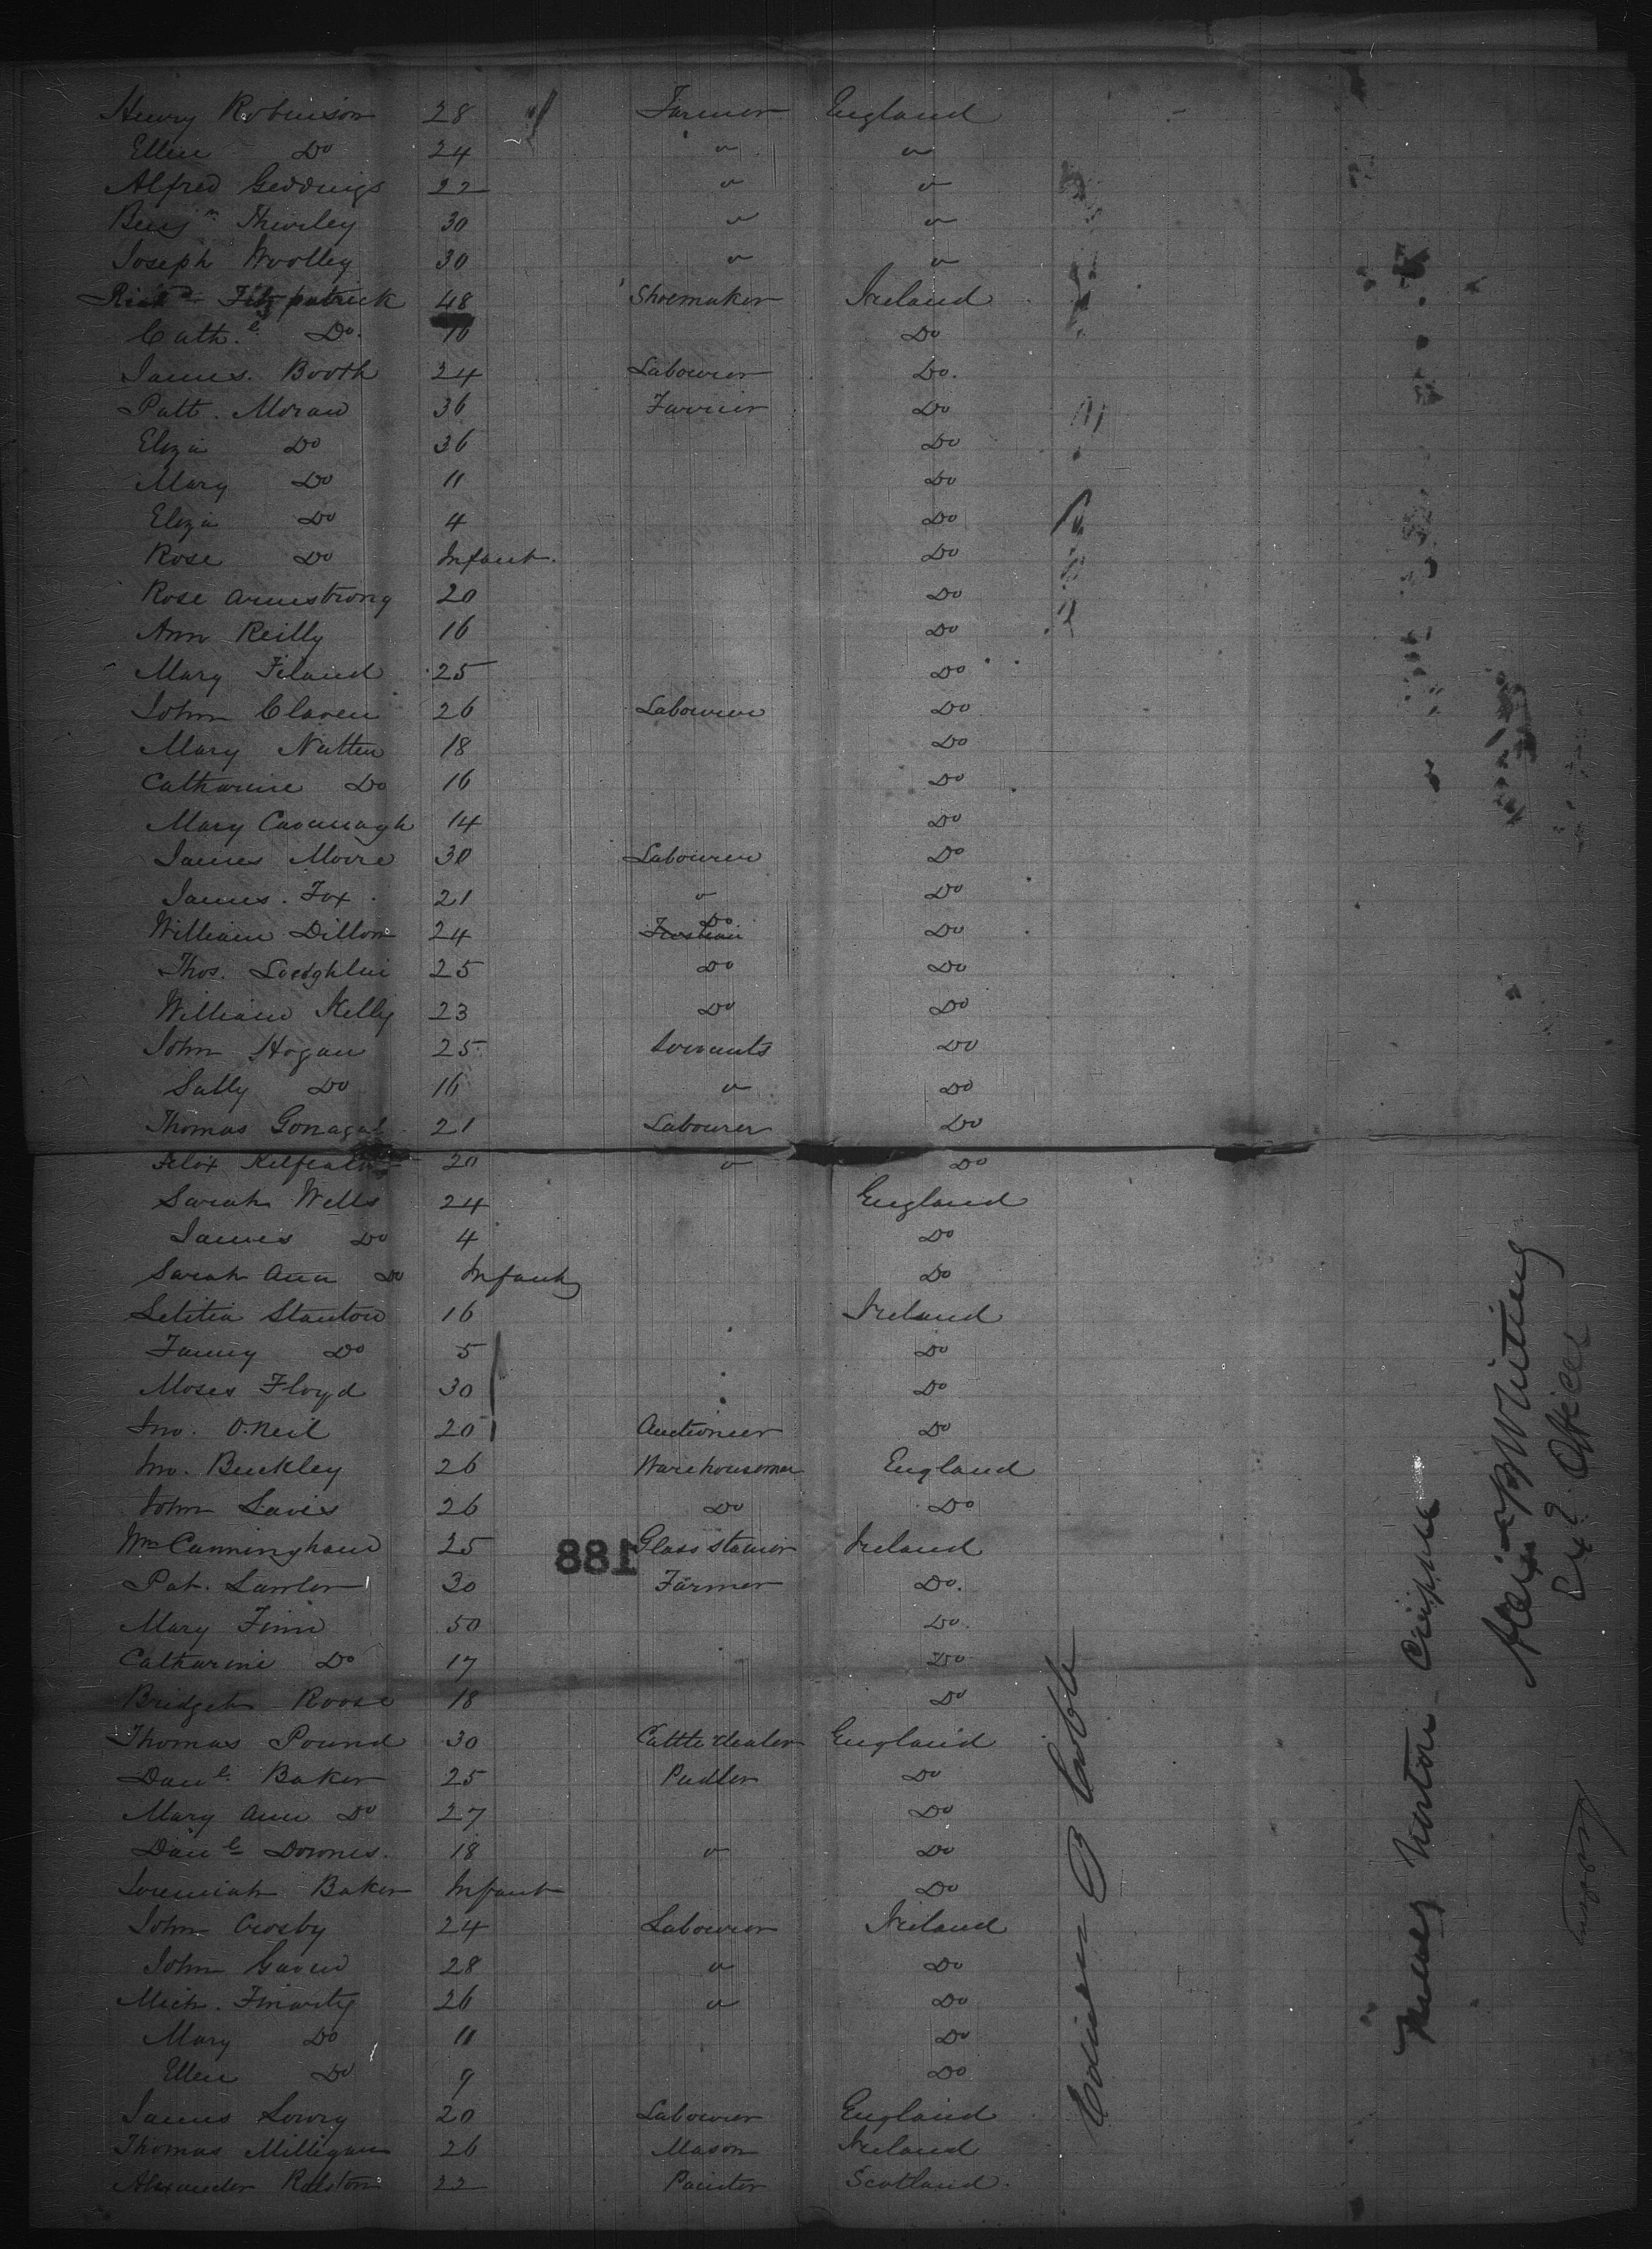 Henry Robinson 28 Farmer England
Ellen Do 24 " "
Alfred Geddings 22 " "
Benjn Thurley 30 " "
Joseph Woolley 30 " "
Richd Fitzpatrick 48 Shoemaker Ireland
Cathe Do. 10 Do
James. Booth 24 Labourer Do.
Patt. Moran 36 Farrier Do
Eliza Do 36 Do
Mary Do 11 Do
Eliza Do 4 Do
Rose Do Infant. Do
Rose Armstrong 20 Do
Ann Reilly 16 Do
Mary Feland 25 Do
John Claren 26 Labourer Do
Mary Natten 18 Do
Catharine Do 16 Do
Mary Cavanagh 14 Do
James Moore 30 Labourer Do
James. Fox 21 " Do
William Dillon 24 Do Do
Thos. Loedghlin 25 Do Do
William Kelly 23 Do Do
John Hogan 25 Servants Do
Sally Do 16 " Do
Thomas 21 Labourer Do
Felix 20 " Do
Sarah Wells 24 England
James Do 4 Do
Sarah Ann Do Infant Do
Letitia Stanton 16 Ireland
Fanny Do 5 Do
Moses Floyd 30 Do
Jno. O.Neil 20 Auctioneer Do
Jno. Buckley 26 Warehouseman England
John Davis 26 Do Do
Wm Cunningham 25 Glass stainer Ireland
188
Pat. Lawlor 30 Farmer Do.
Mary Finn 50 Do.
Catharine Do 17 Do
Bridget Roose 18 Do
Thomas Pound 30 Cattle dealer England
Danl Baker 25 Pedler Do
Mary Ann Do 27 Do
Danl Downes. 18 " Do
Jeremiah Baker Infant Do
John Crosby 24 Labourer Ireland
John Gaven 28 " Do
Mich. Finarty 26 " Do
Mary Do 11 Do
Ellen Do 9 Do
James Lowry 20 Labourer England
Thomas Milligan 26 Mason Ireland
Alexander Ralston 22 Painter Scotland.